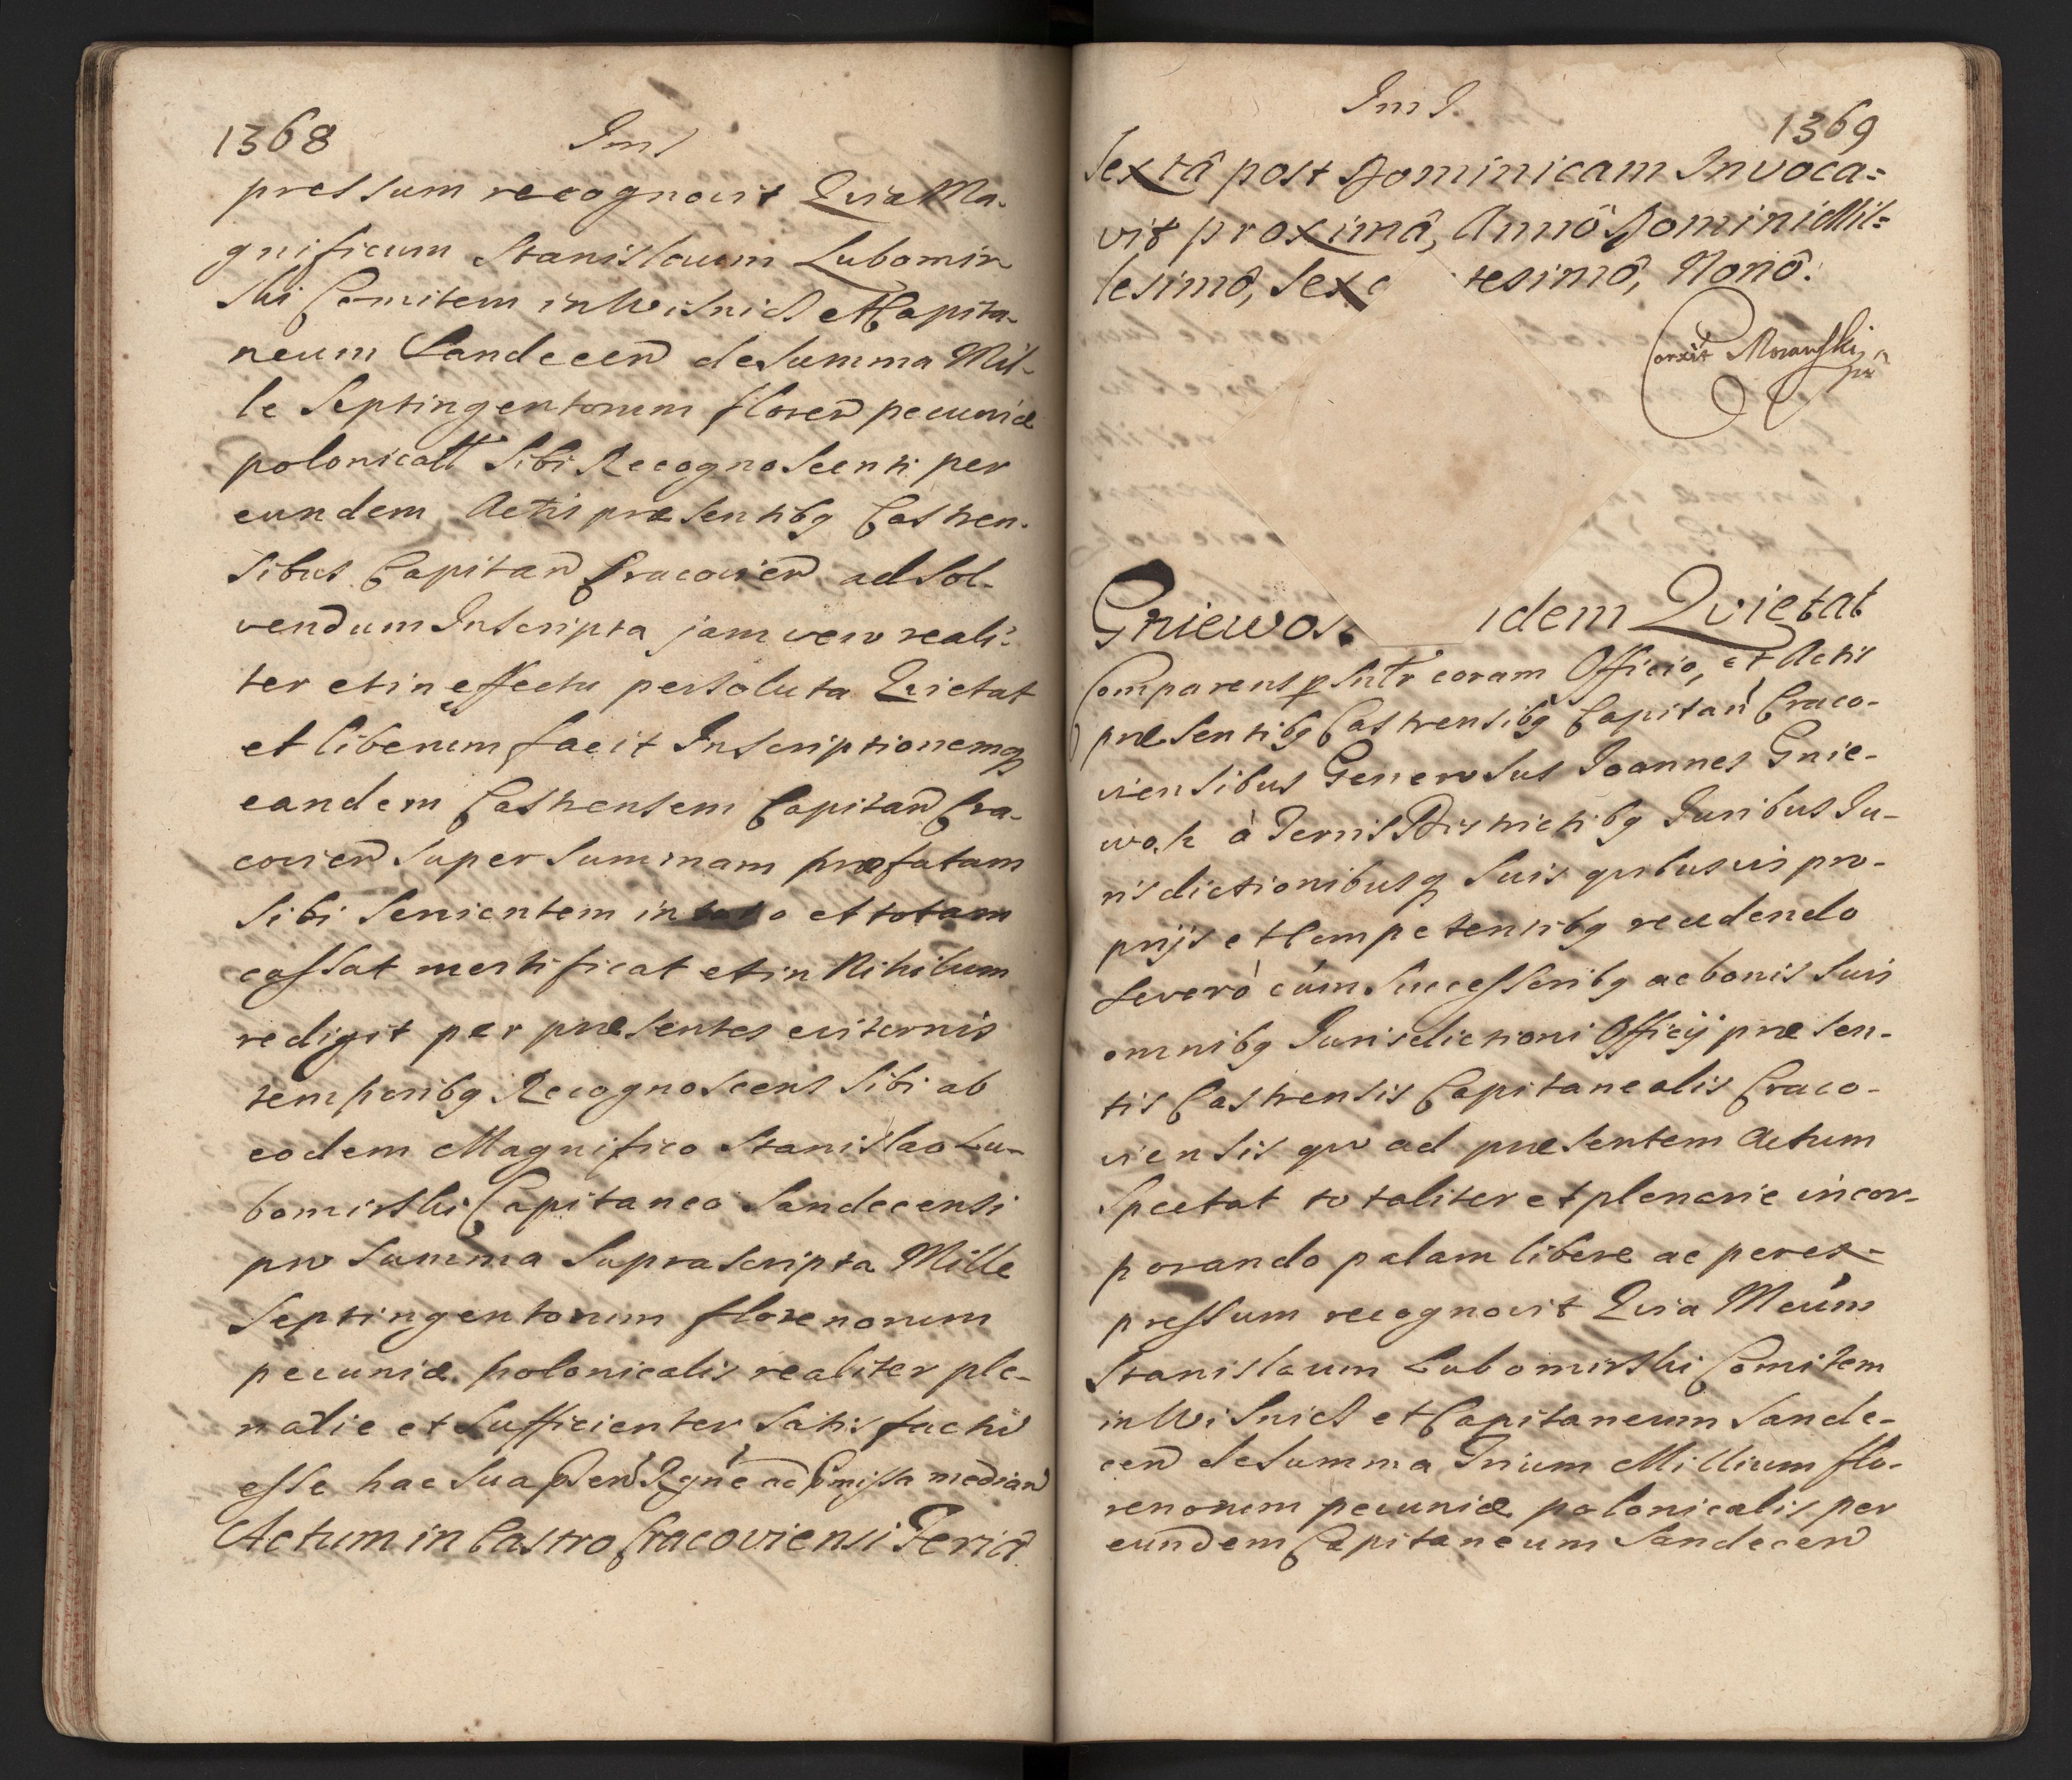 1368
pressum recognovit Quia Ma-
gnificum Stanislaum Lubomir
ski Comitem in Wisnicz et Capita-
neum Sandecen de Summa Mil-
le Septingentorum floren pecuniæ
polonicalis sibi Recognoscenti per
eundem Actis præsentibq Castren-
sibus Capitan Cracovien ad sol-
vendum Inscripta jam vero reali-
ter et in effectu persoluta Quietat
et liberum facit Inscriptionemq
eandem Castrensem Capitan Cra-
covien super summam præfatam
sibi servientem in toto et totam
cassat mortificat et in Nihilum
redigit per præsentes eviternis
temporibq Recognoscens sibi ab
eodem Magnifico Stanislao Lu-
bomirski Capitaneo Sandecensi
pro summa suprascripta Mille
septingentorum florenorum
pecuniæ polonicalis realiter ple-
narie et sufficienter satisfactu
esse hac sua median
Actum in Castro Cracoviensi Feriâ
1369
Sextâ post Dominicam Invoca=
vit proximâ, Annô Domini Mil=
lesimô, Sexc tesimô, Nonô.
Corrxit Morawski
Gniewos idem Quietat
Comparens coram Officio, et Actis
præsentibq Castrensibq Capitan Craco-
viensibus Generosus Joannes Gnie-
wosz à Terris Districtibq Juribus Ju-
risdictionibusq suis quibusvis pro-
prijs et competentibq recedendo
se vero cum successoribq ac bonis suis
omnibq Jurisdictioni Officij præsen-
tis Castrensis Capitanealis Craco-
viensis quo ad præsentem Actum
spectat totaliter et plenarie incor-
porando palam libere ac perex-
pressum recognovit Quia Mcum
Stanislaum Lubomirski Comitem
in Wisnicz et Capitaneum Sande-
cen de Summa Trium Millium flo-
renorum pecuniæ polonicalis per
eundem Capitaneum Sandecen